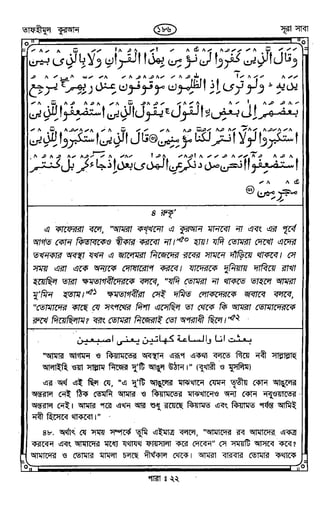 তাফহীমুল কুরআন
১৮৬
সূরা সাবা
وَقَالَ الَّذِيْنَ كَفَرُوْا لَنْ نُّؤْمِنَ بِهٰذَا الْقُرْاٰنِ وَلَا بِالَّذِيْ بَيْنَ
يَدَيْهِ ؕ وَلَوْ تَرٰٓى اِذِ الظّٰلِمُوْنَ مَوْقُوْفُوْنَ عِنْدَ رَبِّهِمْ ۚ يَرْجِعُ
بَعْضُهُمْ اِلٰى بَعْضِ ِۨ الْقَوْلَ ۚ يَقُوْلُ الَّذِيْنَ اسْتُضْعِفُوْا لِلَّذِيْنَ
اسْتَكْبَرُوْا لَوْلَآ اَنْتُمْ لَكُنَّا مُؤْمِنِيْنَ ۞ قَالَ الَّذِيْنَ اسْتَكْبَرُوْا لِلَّذِيْنَ
اسْتُضْعِفُوْٓا اَنَحْنُ صَدَدْنٰكُمْ عَنِ الْهُدٰى بَعْدَ اِذْ جَآءَكُمْ بَلْ كُنْتُمْ
مُّجْرِمِيْنَ ۞
৪ রুকূ'
এ কাফেররা বলে, "আমরা কখখনো এ কুরআন মানবো না এবং এর পূর্বে
আগত কোন কিতাবকেও স্বীকার করবো না।"৫০ হায়! যদি তোমরা দেখো এদের
তখনকার অবস্থা যখন এ জালেমরা নিজেদের রবের সামনে দাঁড়িয়ে থাকবে। সে
সময় এরা একে অন্যকে দোষারোপ করবে। যাদেরকে দুনিয়ায় দাবিয়ে রাখা
হয়েছিল তারা ক্ষমতাগর্বীদেরকে বলবে, "যদি তোমরা না থাকতে তাহলে আমরা
মু'মিন হতাম।"৫১ ক্ষমতাগর্বীরা সেই দমিত লোকদেরকে জবাবে বলবে,
"তোমাদের কাছে যে সৎপথের দিশা এসেছিল তা থেকে কি আমরা তোমাদেরকে
রুখে দিয়েছিলাম? বরং তোমরা নিজেরাই তো অপরাধী ছিলে।"৫২
بعثت انا والساعة كهاتين يعنى اصبعين
"আমার আগমন ও কিয়ামতের অবস্থান এরূপ একথা বলতে গিয়ে নবী সাল্লাল্লাহু
আলাইহি ওয়া সাল্লাম নিজের দু'টি আঙুল উঠান।" (বুখারী ও মুসলিম)
এর অর্থ এই ছিল যে, "এ দু'টি আঙুলের মাঝখানে যেমন তৃতীয় কোন আঙুলের
অন্তরাল নেই ঠিক তেমনি আমার ও কিয়ামতের মাঝখানেও অন্য কোন নবুওয়াতের
অন্তরাল নেই। আমার পরে এখন আর শুধু রয়েছে কিয়ামত এবং কিয়ামত পর্যন্ত আমিই
নবী হিসেবে থাকবো।"
৪৮. অর্থাৎ যে সময় সম্পর্কে তুমি এইমাত্র বললে, "আমাদের রব আমাদের একত্র
করবেন এবং আমাদের মধ্যে যথাযথ ফায়সালা করে দেবেন" সে সময়টি আসবে কবে?
আমাদের ও তোমার মামলা চলছে দীর্ঘকাল থেকে। আমরা বারবার তোমার কথাকে
পারা ঃ ২২